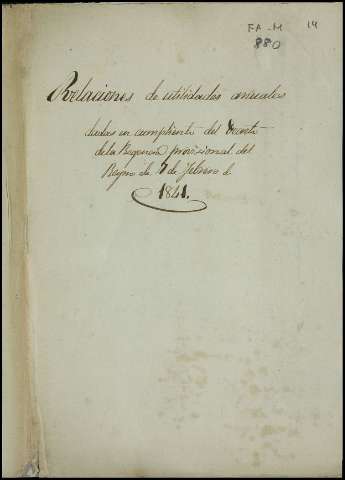 FA-M 14
880
Relaciones de utilidades anuales
dadas en cumplimto del Decreto
de la Regencia provisional del
Reyno de 5 de Febrero de
1841.